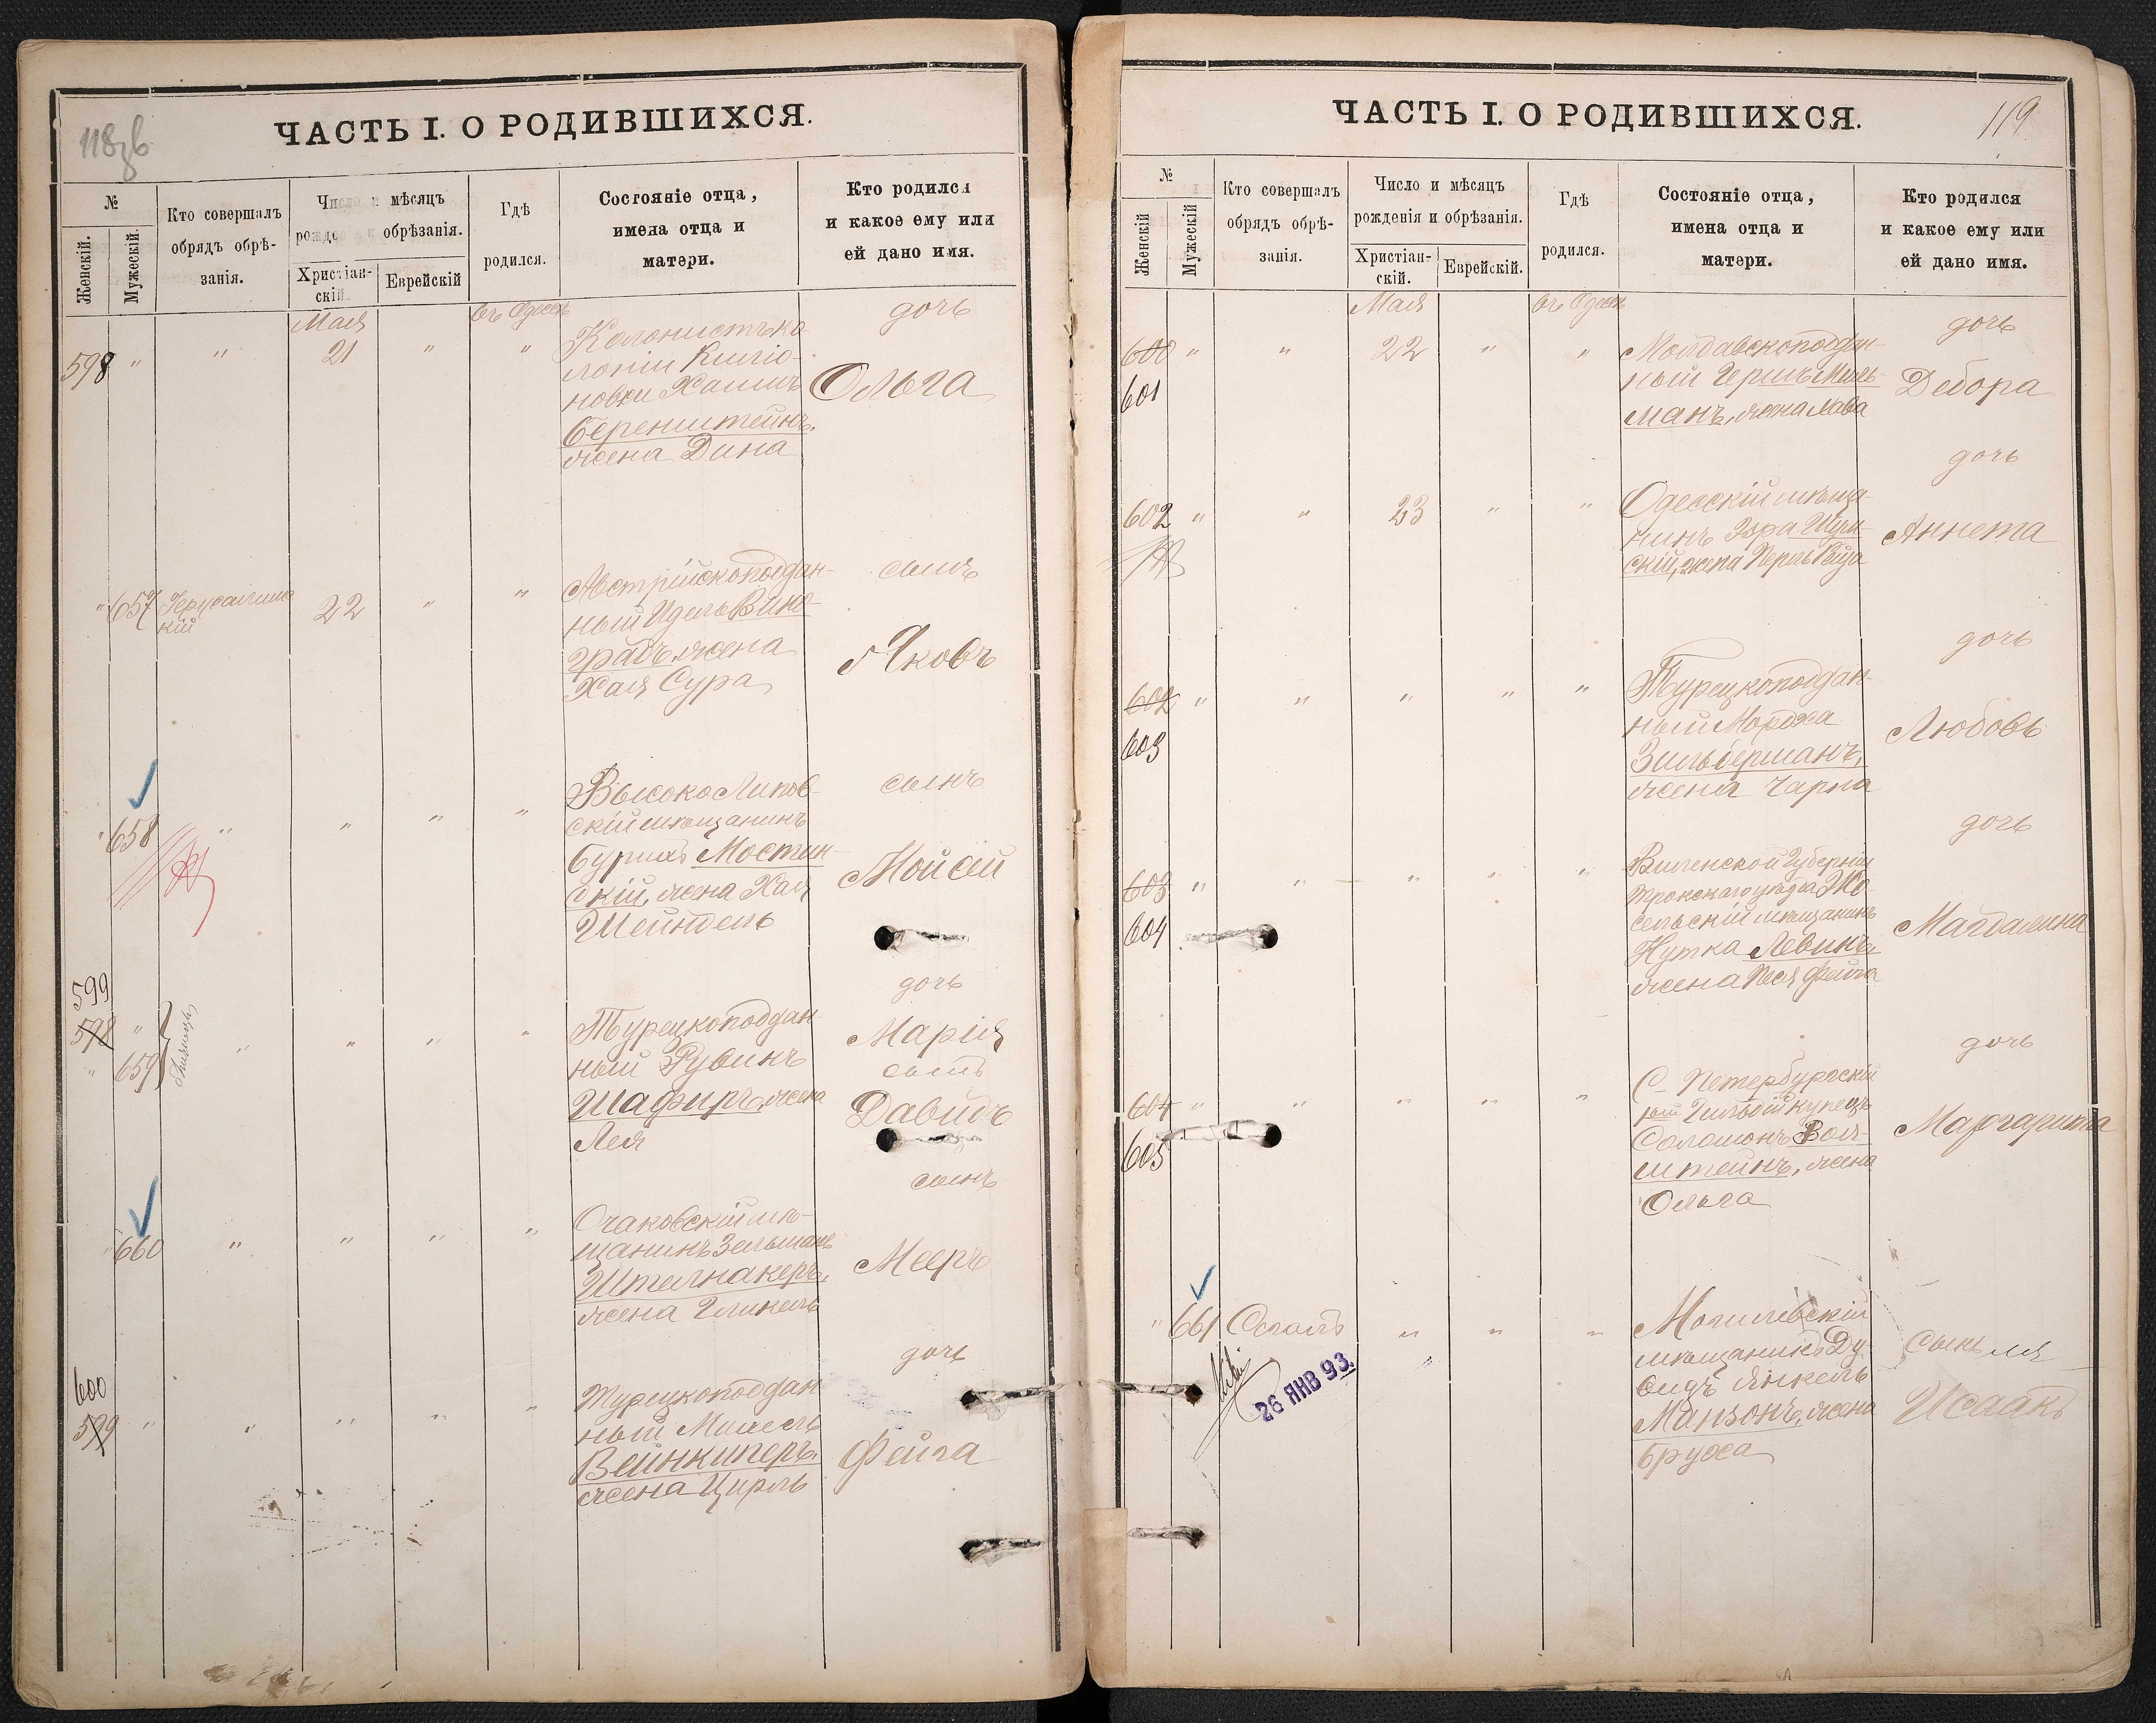 118об
ЧАСТЬ I. О РОДИВШИХСЯ.
№
Женскій.
Мужескій.
Кто совершалъ
обрядъ обрѣ-
занія.
Число и мѣсяцъ
рожде обрѣзанія.
Христіан-
скій.
Еврейскій
Гдѣ
родился.
Состояніе отца,
имена отца и
матери.
Кто родился
и какое ему или
ей дано имя.
Мая
въ Одессѣ
598 " " 21 " "
Колонистъ ко-
лоніи
новки Хаимъ
Беренштейнъ,
жена Дина
дочь
Ольга
" 657 Іерусалимс
кій
22 " "
Австрійскоподдан-
ный Идель Вино-
градъ, жена
Хая Сура
сынъ
Яковъ
" 658 " " " "
Высоко Литов-
скій мѣщанинъ
Мостин-
скій, жена Хая
Шейндель
сынъ
Мойсей
599
598 "
" 659 " " " "
Турецкоподдан-
ный Рувинъ
Шафиръ, жена
Лея
дочь
Марія
сынъ
Давидъ
" 660 " " " "
Очаковскій мѣ-
щанинъ Зельманъ
Шталнакеръ,
жена Гликель
сынъ
Мееръ
600
599 " " " " "
Турецкоподдан-
ный
Вейнкиперъ,
жена Цирль
дочь
Фейга
ЧАСТЬ I. О РОДИВШИХСЯ.
119
№
Женскій
Мужескій
Кто совершалъ
обрядъ обрѣ-
занія.
Число и мѣсяцъ
рожденія и обрѣзанія.
Христіан-
скій.
Еврейскій.
Гдѣ
родился.
Состояніе отца,
имена отца и
матери.
Кто родился
и какое ему или
ей дано имя.
Мая
въ Одессѣ
600 " " 22 " "
601
Молдавскоподдан-
ный Гершъ Миль-
манъ, жена Хава
дочь
Дебора
602 " " 23 " "
Одесскій мѣща-
нинъ
скій, жена Перль Рейза
дочь
Аннета
602 " " " " "
603
Турецкоподдан-
ный Мордха
Зильберманъ,
жена Чарна
дочь
Любовь
603 " " " " "
604
Виленской Губерніи
Трокскаго уѣзда Жо-
сельскій мѣщанинъ
Нутка Левинъ,
жена Песя Фейга
дочь
Магдалина
604 " " " " "
605
С-Петербургскій
1ой Гильдіи купецъ
Соломонъ
штейнъ, жена
Ольга
дочь
Маргарита
" 661 Сегалъ " " "
26 ЯНВ 93.
Могилевскій
мѣщанинъ Ду-
видъ Янкель
Манзонъ, жена
Бруха
сынъ имя
Исаакъ